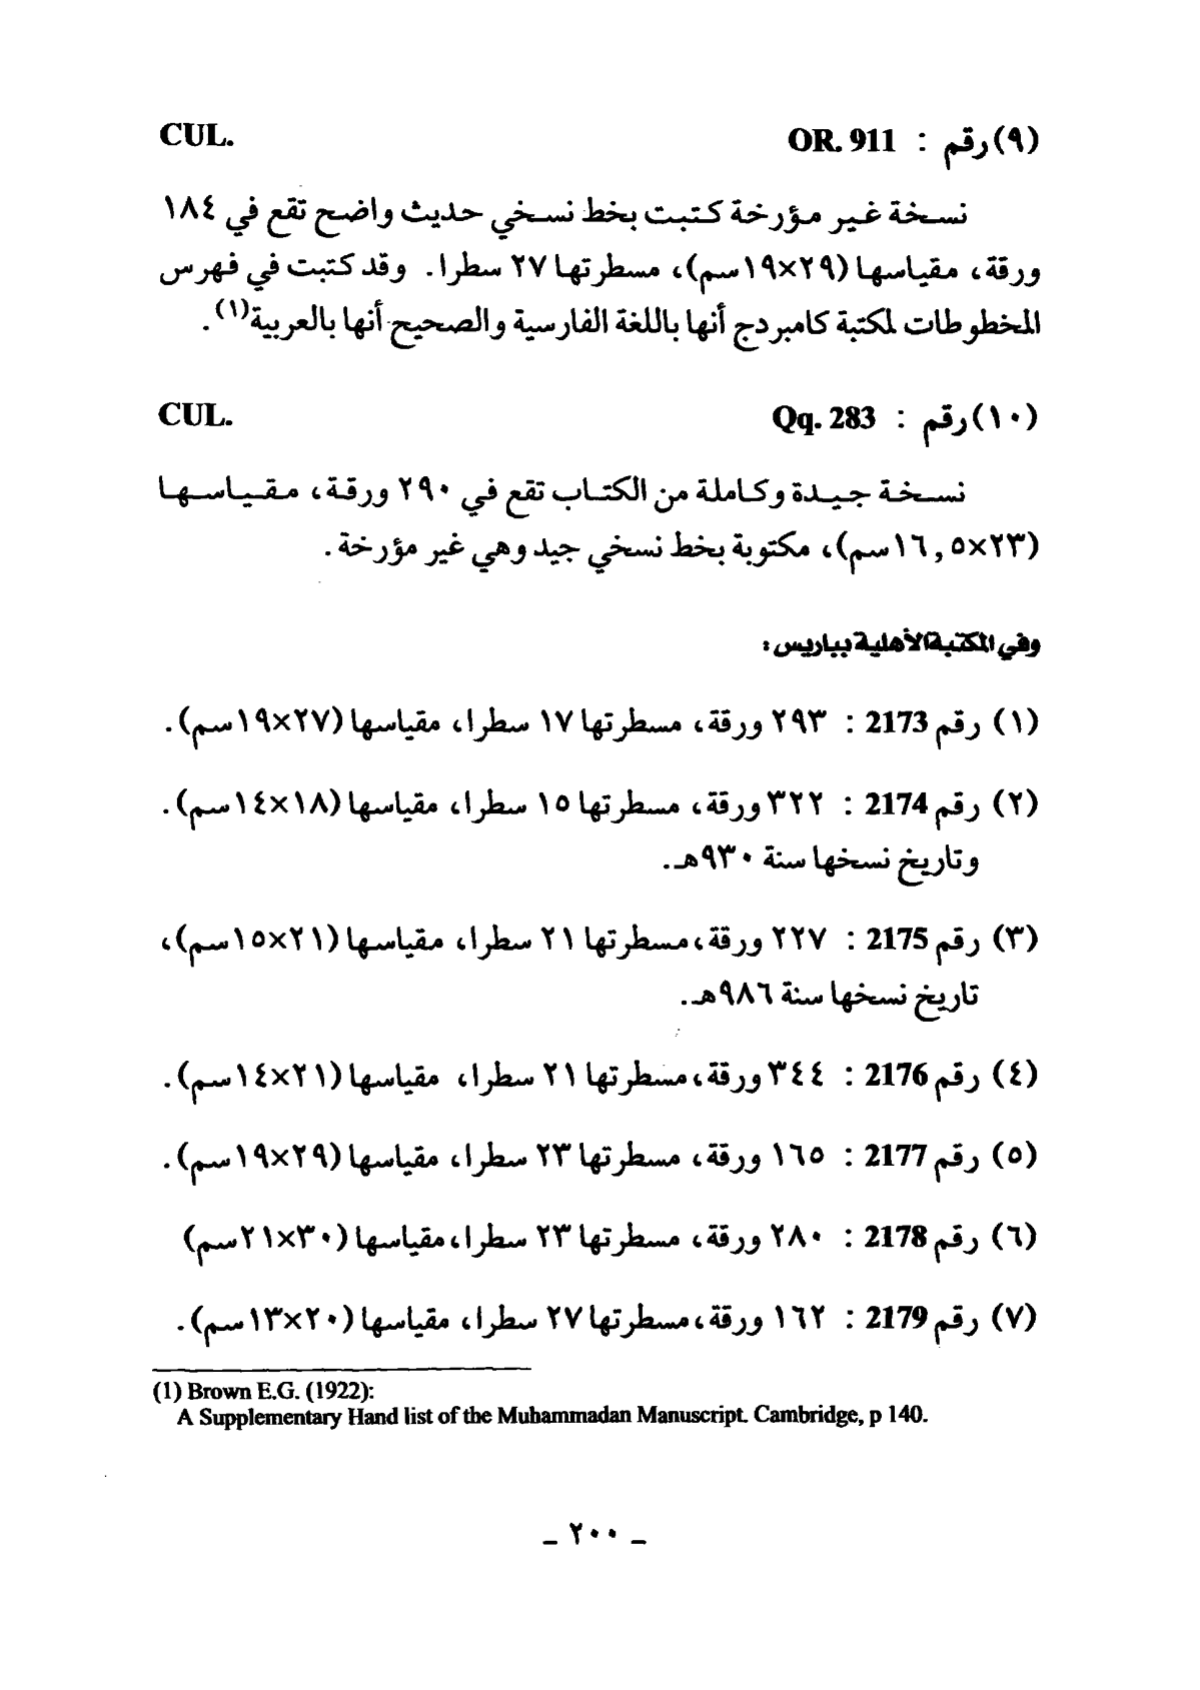 (٩) رقم : OR. 911 CUL.
نسخة غير مؤرخة كتبت بخط نسخي حديث واضح تقع في ١٨٤
ورقة، مقياسها (٢٩×١٩سم)، مسطرتها ٢٧ سطرا. وقد كتبت في فهرس
المخطوطات لمكتبة كامبردج أنها باللغة الفارسية والصحيح أنها بالعربية(١).
(١٠) رقم : Qq. 283 CUL.
نسخة جيدة وكاملة من الكتاب تقع في ٢٩٠ ورقة، مقياسها
(٢٣×١٦,٥سم)، مكتوبة بخط نسخي جيد وهي غير مؤرخة.
وفي المكتبة الأهلية بباريس:
(١) رقم 2173 : ٢٩٣ ورقة، مسطرتها ١٧ سطرا، مقياسها (٢٧×١٩سم).
(٢) رقم 2174 : ٣٢٢ ورقة، مسطرتها ١٥ سطرا، مقياسها (١٨×١٤سم).
وتاريخ نسخها سنة ٩٣٠هـ.
(٣) رقم 2175 : ٢٢٧ ورقة، مسطرتها ٢١ سطرا، مقياسها (٢١×١٥سم)،
تاريخ نسخها سنة ٩٨٦هـ.
(٤) رقم 2176 : ٣٤٤ ورقة، مسطرتها ٢١ سطرا، مقياسها (٢١×١٤سم).
(٥) رقم 2177 : ١٦٥ ورقة، مسطرتها ٢٣ سطرا، مقياسها (٢٩×١٩سم).
(٦) رقم 2178 : ٢٨٠ ورقة، مسطرتها ٢٣ سطرا، مقياسها (٣٠×٢١سم)
(٧) رقم 2179 : ١٦٢ ورقة، مسطرتها ٢٧ سطرا، مقياسها (٢٠×١٣سم).
(1) Brown E.G. (1922):
A Supplementary Hand list of the Muhammadan Manuscript. Cambridge, p 140.
- ٢٠٠ -